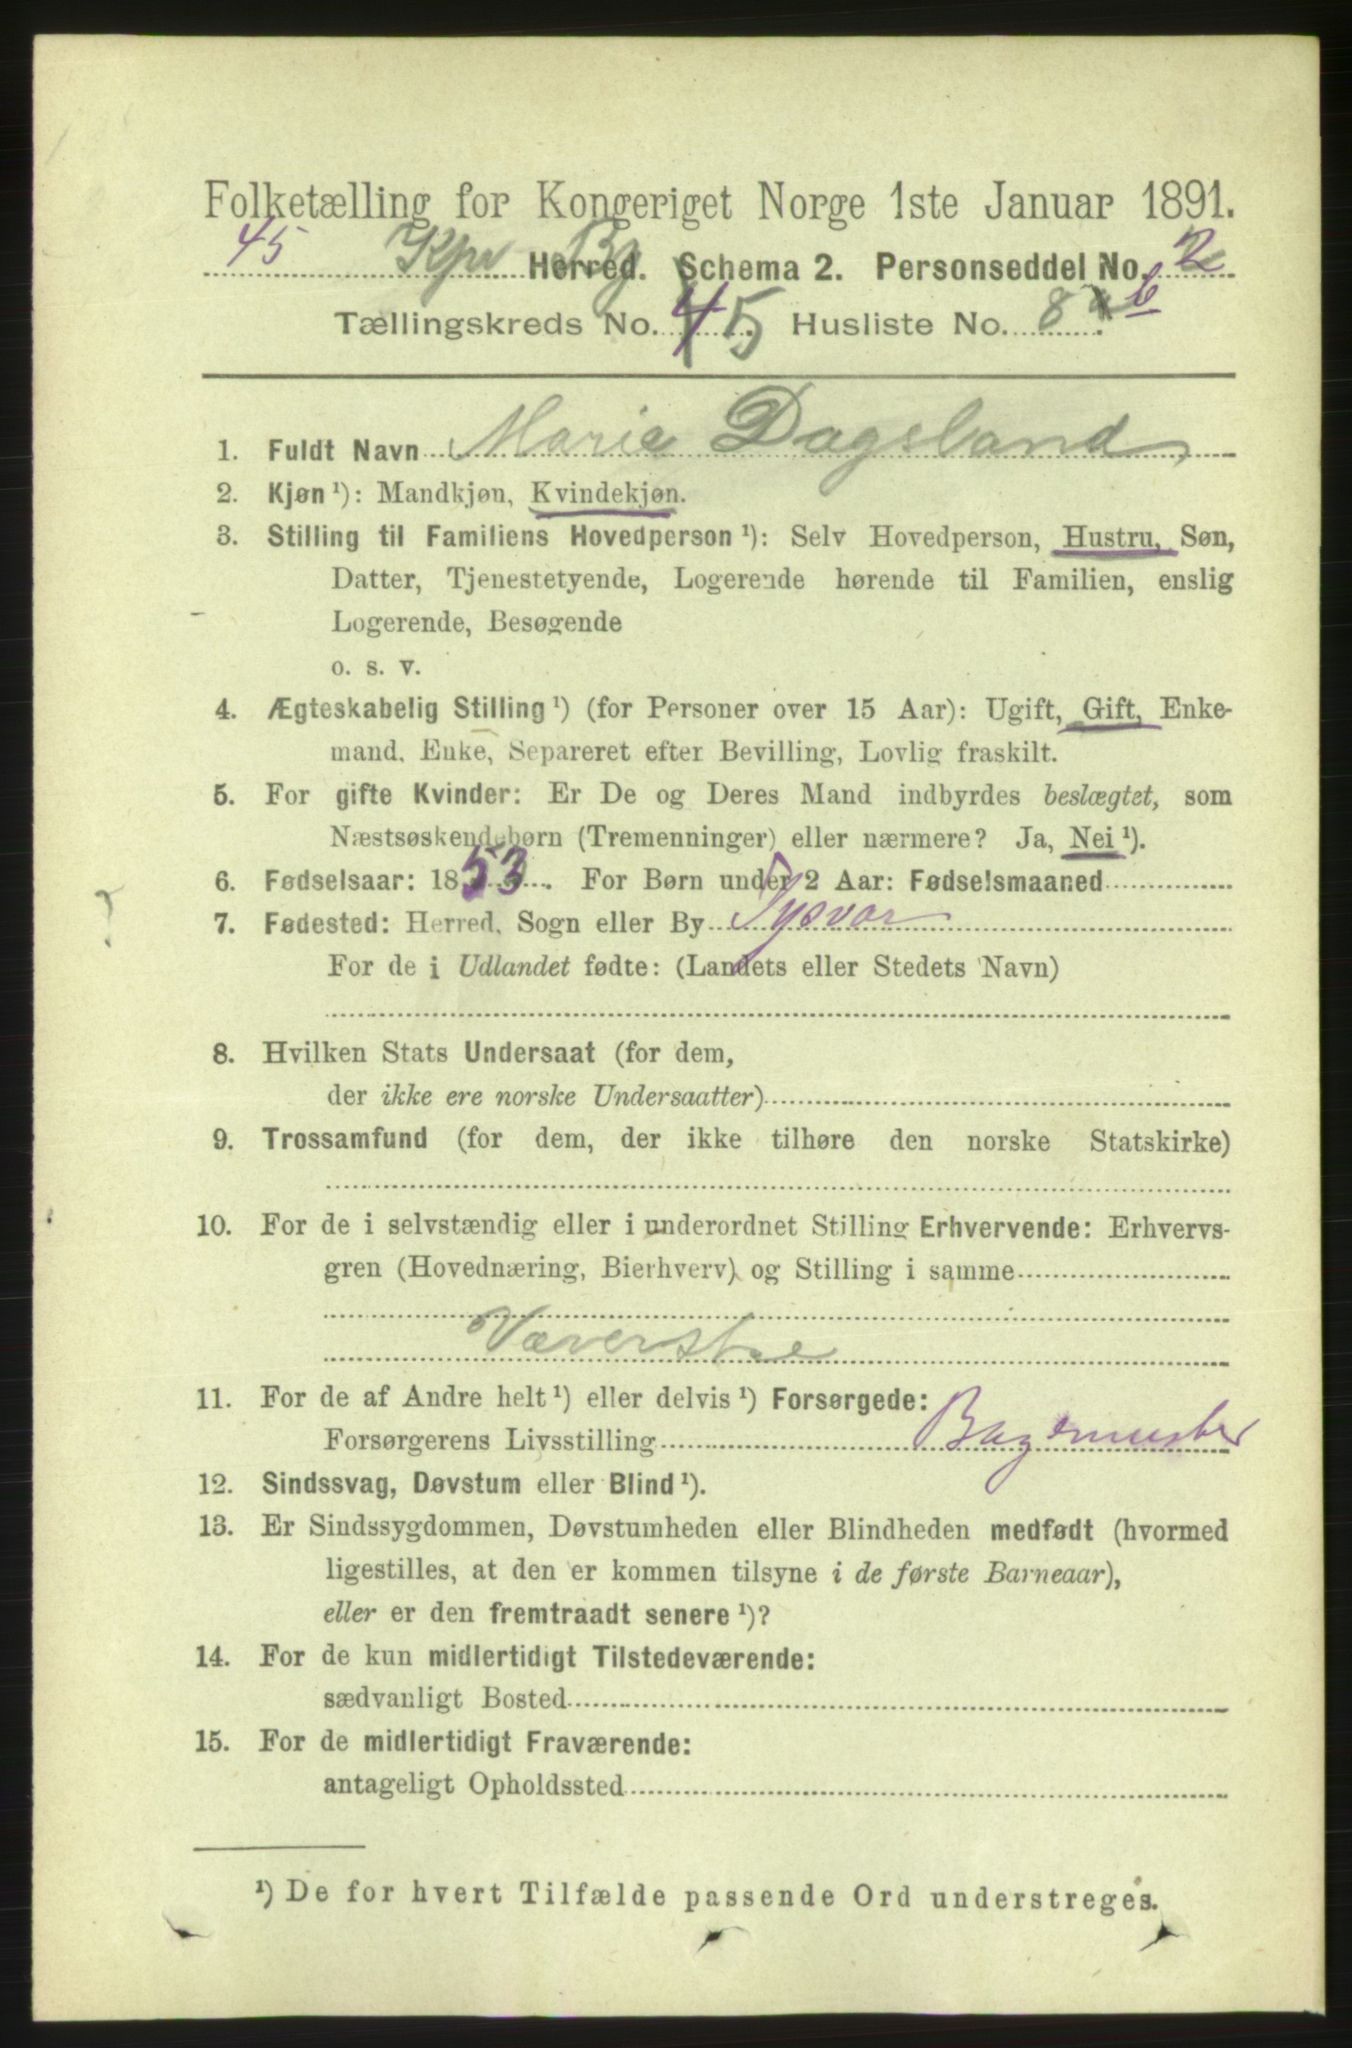 Folketælling for Kongeriget Norge 1ste Januar 1891.
45 Herred. By Schema 2. Personseddel No. 2
Tællingskreds No. 45. Husliste No. 8 b
1. Fuldt Navn Marie Dagsland
2. Kjøn ¹): Mandkjøn, Kvindekjøn.
3. Stilling til Familiens Hovedperson ¹): Selv Hovedperson, Hustru, Søn,
Datter, Tjenestetyende, Logerende hørende til Familien, enslig
Logerende, Besøgende
o. s. v.
4. Ægteskabelig Stilling ¹) (for Personer over 15 Aar): Ugift, Gift, Enke-
mand, Enke, Separeret efter Bevilling, Lovlig fraskilt.
5. For gifte Kvinder: Er De og Deres Mand indbyrdes beslægtet, som
Næstsøskendebørn (Tremenninger) eller nærmere? Ja, Nei ¹).
6. Fødselsaar: 1853. For Børn under 2 Aar: Fødselsmaaned
7. Fødested: Herred, Sogn eller By Tysvær
For de i Udlandet fødte: (Landets eller Stedets Navn)
8. Hvilken Stats Undersaat (for dem,
der ikke ere norske Undersaatter)
9. Trossamfund (for dem, der ikke tilhøre den norske Statskirke)
10. For de i selvstændig eller i underordnet Stilling Erhvervende: Erhvervs-
gren (Hovednæring, Bierhverv) og Stilling i samme
Væverske
11. For de af Andre helt ¹) eller delvis ¹) Forsørgede:
Forsørgerens Livsstilling Bagermester
12. Sindssvag, Døvstum eller Blind ¹).
13. Er Sindssygdommen, Døvstumheden eller Blindheden medfødt (hvormed
ligestilles, at den er kommen tilsyne i de første Barneaar),
eller er den fremtraadt senere ¹)?
14. For de kun midlertidigt Tilstedeværende:
sædvanligt Bosted
15. For de midlertidigt Fraværende:
antageligt Opholdssted
¹) De for hvert Tilfælde passende Ord understreges.